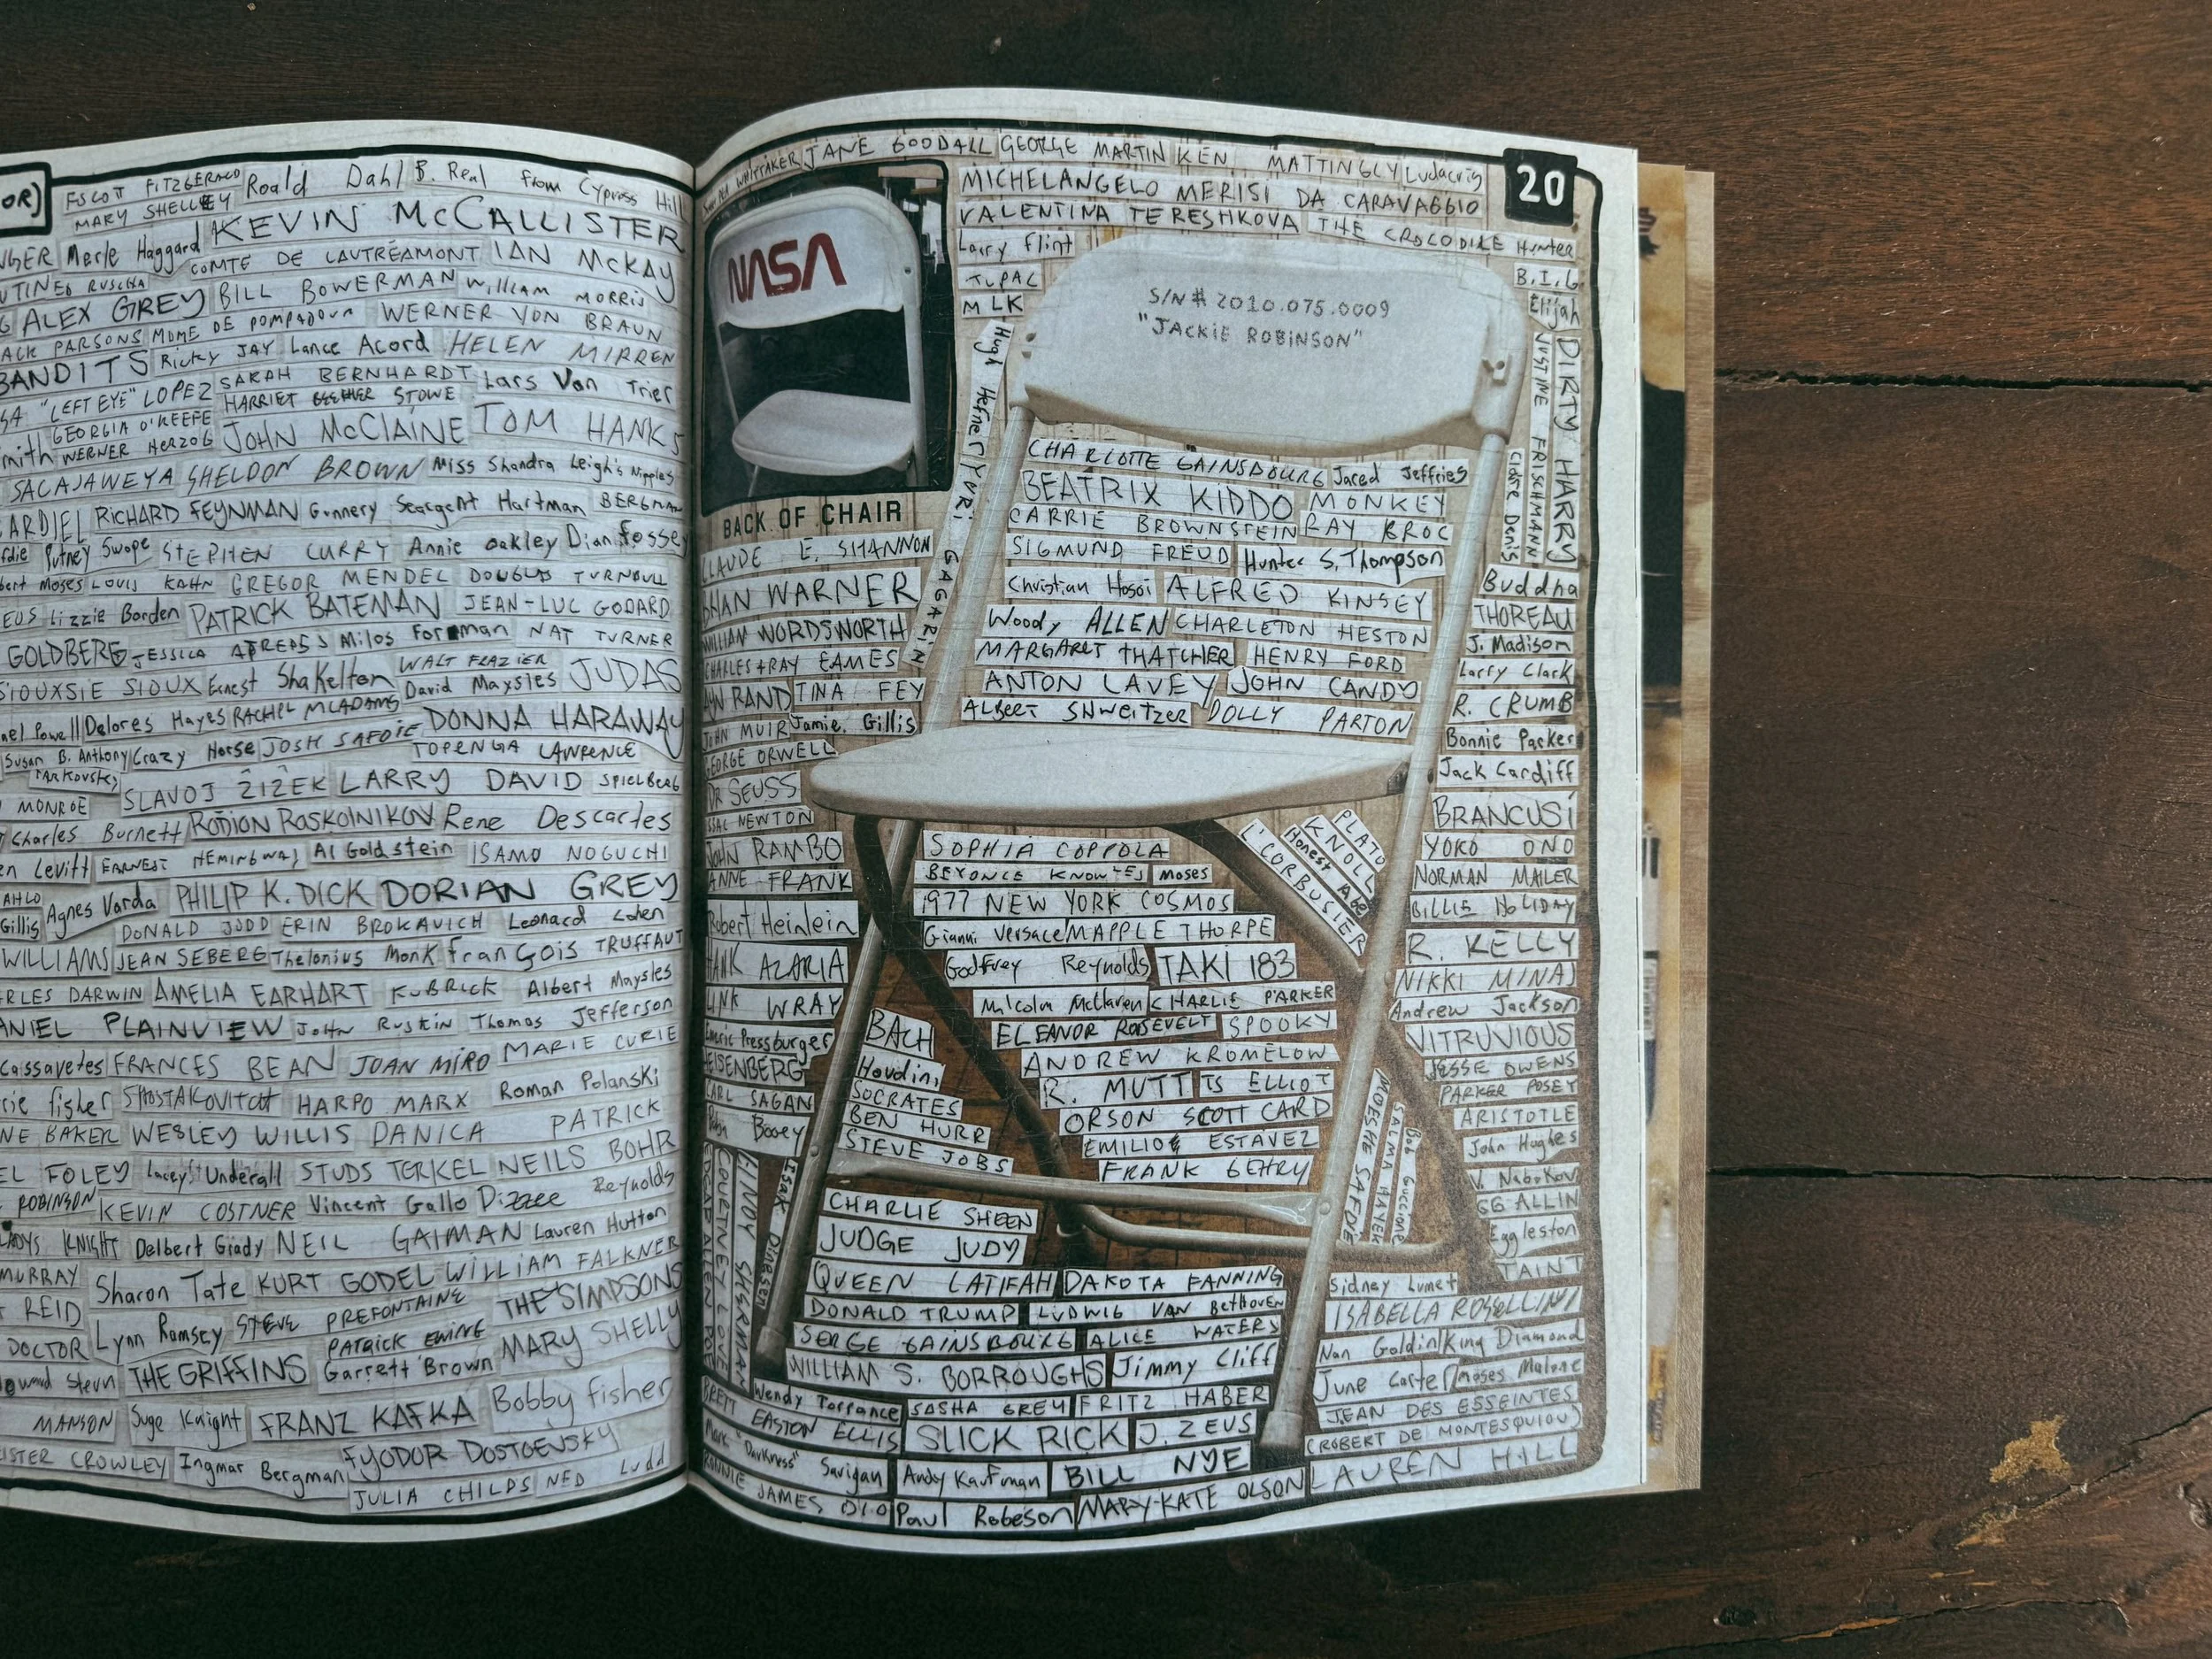 OR)
FSCOT FITZGERALD
MARY SHELLEY
Roald Dahl
B. Real from Cypress Hill
Merle Haggard
KEVIN McCALLISTER
COMTE DE LAUTRÉAMONT
IAN McKAY
RUSCHA
ALEX GREY
BILL BOWERMAN
William MORRIS
PARSONS
MDME DE POMPADOUR
WERNER VON BRAUN
BANDITS
Ricky JAY
Lance Acord
HELEN MIRREN
"LEFT EYE" LOPEZ
SARAH BERNHARDT
Lars Von Trier
HARRIET BEECHER STOWE
GEORGIA O'KEEFE
WERNER HERZOG
JOHN McCLAINE
TOM HANKS
SACAJAWEYA
SHELDON BROWN
Miss Shandra Leigh's Nipples
RICHARD FEYNMAN
Gunnery Seargent Hartman
BERGMAN
Putney Swope
STEPHEN CURRY
Annie oakley
Dian fossey
Moses
LOUIS KAHN
GREGOR MENDEL
DOUGLAS TURNBULL
Lizzie Borden
PATRICK BATEMAN
JEAN-LUC GODARD
GOLDBERG
JESSICA ATREADS
Milos Forman
NAT TURNER
SIOUXSIE SIOUX
Ernest Shakelton
WALT FRAZIER
David Maysles
JUDAS
Powell
Delores Hayes
RACHEL MCADAMS
DONNA HARAWAY
Susan B. Anthony
Crazy Horse
JOSH SAFDIE
TOPENGA LAWRENCE
TARKOVSKY
SLAVOJ ŽIŽEK
LARRY DAVID
SPIELBERG
MONROE
Charles Burnett
RODION RASKOLNIKOV
Rene Descartes
Levitt
EARNEST HEMINGWAY
Al Goldstein
ISAMO NOGUCHI
AHLO
Gillis
Agnes Varda
PHILIP K. DICK
DORIAN GREY
DONALD JUDD
ERIN BROKAVICH
Leonard Cohen
WILLIAMS
JEAN SEBERG
Thelonius Monk
françois TRUFFAUT
DARWIN
AMELIA EARHART
KUBRICK
Albert Maysles
PLAINVIEW
JOHN Ruskin
Thomas Jefferson
cassavetes
FRANCES BEAN
JOAN MIRO
MARIE CURIE
fisher
SHOSTAKOVITCH
HARPO MARX
Roman Polanski
BAKER
WESLEY WILLIS
DANICA PATRICK
FOLEY
Lacey Underall
STUDS TERKEL
NEILS BOHR
ROBINSON
KEVIN COSTNER
Vincent Gallo
Dizzee Reynolds
KNIGHT
Delbert Grady
NEIL GAIMAN
Lauren Hutton
MURRAY
Sharon Tate
KURT GODEL
WILLIAM FALKNER
REID
Lynn Ramsey
STEVE PREFONTAINE
THE SIMPSONS
DOCTOR
PATRICK EWING
Stern
THE GRIFFINS
Garrett Brown
MARY SHELLY
MANSON
Suge Knight
FRANZ KAFKA
Bobby fisher
CROWLEY
Ingmar Bergman
FYODOR DOSTOEVSKY
JULIA CHILDS
NED Ludd
20
WHITTAKER
JANE GOODALL
GEORGE MARTIN
KEN MATTINGLY
Ludacris
MICHELANGELO MERISI DA CARAVAGGIO
VALENTINA TERESHKOVA
THE CROCODILE HUNTER
Larry flint
TUPAC
MLK
B.I.G
Elijah
NASA
S/N# 2010.075.0009
"JACKIE ROBINSON"
BACK OF CHAIR
Hugh Hefner
YURI GAGARIN
DIRTY HARRY
JUSTINE FRISCHMANN
Claire Denis
CHARLOTTE GAINSBOURG
Jared Jeffries
BEATRIX KIDDO
MONKEY
CARRIE BROWNSTEIN
RAY BROC
SIGMUND FREUD
Hunter S. Thompson
Christian Hosoi
ALFRED KINSEY
Woody ALLEN
CHARLETON HESTON
MARGARET THATCHER
HENRY FORD
ANTON LAVEY
JOHN CANDY
ALBERT SHWEITZER
DOLLY PARTON
E. SHANNON
WARNER
WORDSWORTH
CHARLES + RAY EAMES
RAND
TINA FEY
JOHN MUIR
Jamie Gillis
GEORGE ORWELL
DR SEUSS
NEWTON
JOHN RAMBO
ANNE FRANK
Robert Heinlein
HANK AZARIA
LINK WRAY
Emeric Pressburger
HEISENBERG
CARL SAGAN
Booey
Buddha
THOREAU
J. Madison
Larry Clark
R. CRUMB
Bonnie Parker
Jack Cardiff
BRANCUSI
YOKO ONO
NORMAN MAILER
BILLIE HOLIDAY
R. KELLY
NIKKI MINAJ
Andrew Jackson
VITRUVIOUS
JESSE OWENS
PARKER POSEY
ARISTOTLE
John Hughes
V. Nabokov
GG ALLIN
Eggleston
TAINT
PLATO
KNOLL
Honest Abe
L'CORBUSIER
SOPHIA COPPOLA
BEYONCE KNOWLES
MOSES
1977 NEW YORK COSMOS
Gianni Versace
MAPPLE THORPE
Godfrey Reynolds
TAKI 183
Malcolm McClaren
CHARLIE PARKER
ELEANOR ROSEVELT
SPOOKY
ANDREW KROMELOW
R. MUTT
TS ELLIOT
ORSON SCOTT CARD
EMILIOE ESTAVEZ
FRANK GEHRY
BACH
Houdini
SOCRATES
BEN HURR
STEVE JOBS
MOESHE SAFDIE
SALMA HAYEK
Bob Guccione
CINDY SHERMAN
COURTNEY LOVE
EDGAR ALLEN POE
ISAK Dinesen
CHARLIE SHEEN
JUDGE JUDY
QUEEN LATIFAH
DAKOTA FANNING
DONALD TRUMP
LUDWIG VAN BetHoven
SERGE GAINSBOURG
ALICE WATERS
WILLIAM S. BORROUGHS
Jimmy Cliff
Wendy Torrance
SASHA GREY
FRITZ HABER
BRETT EASTON ELLIS
SLICK RICK
J. ZEUS
Marc "Darkness" Savigan
Andy Kaufman
BILL NYE
RONNIE JAMES DIO
Paul Robeson
MARY-KATE OLSON
Sidney Lumet
ISABELLA ROSSELLINI
Nan Goldin
King Diamond
June Carter
Moses Malone
JEAN DES ESSEINTES
(ROBERT DE MONTESQUIOU)
LAUREN HILL